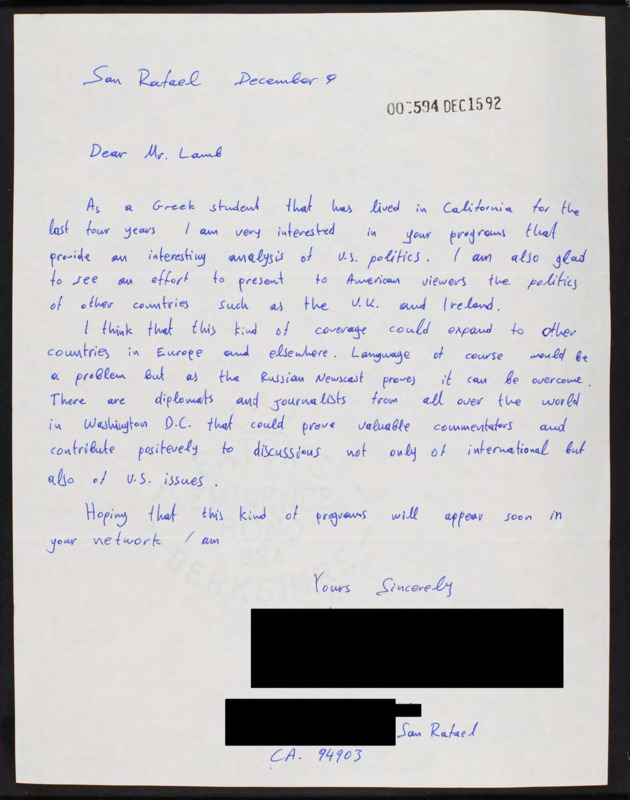 San Rafael December 9
00 594 DEC1592
Dear Mr. Lamb
As a Greek student that has lived in California for the
last four years I am very interested in your programs that
provide an interesting analysis of U.S. politics. I am also glad
to see an effort to present to American viewers the politics
of other countries such as the U.K. and Ireland.
I think that this kind of coverage could expand to other
countries in Europe and elsewhere. Language of course would be
a problem but as the Russian Newscast proves it can be overcome.
There are diplomats and journalists from all over the world
in Washington D.C. that could prove valuable commentators and
contribute positevely to discussions not only of international but
also of U.S. issues.
Hoping that this kind of programs will appear soon in
your network I am
Yours Sincerely
San Rafael
CA. 94903
BERKSHIRE